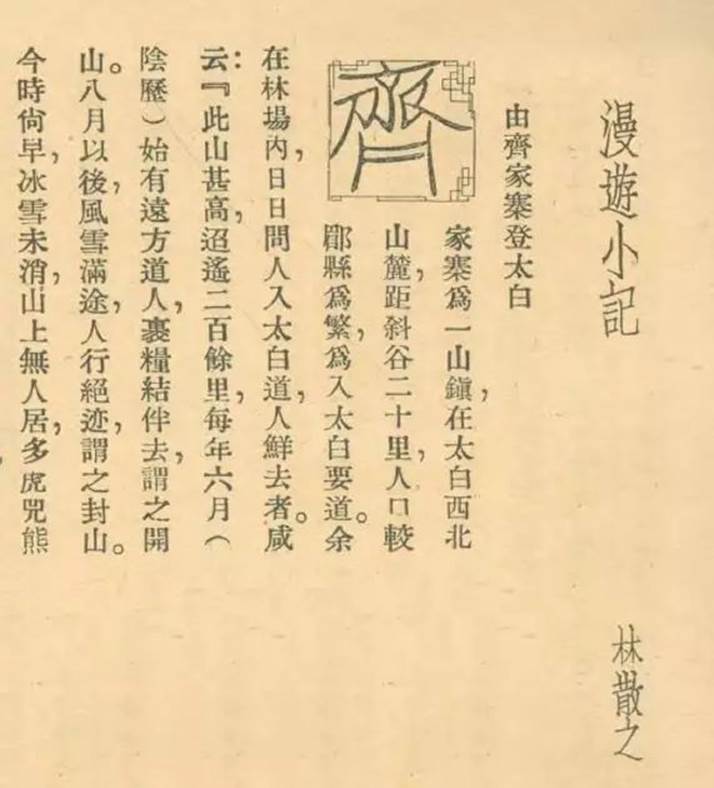 漫遊小記
林散之
由齊家寨登太白
齊
家寨爲一山鎭，在太白西北
山麓，距斜谷二十里，人口較
郿縣爲繁，爲入太白要道。余
在林場內，日日問人入太白道，人鮮去者。咸
云：『此山甚高，迢遙二百餘里，每年六月（
陰歷）始有遠方道人，裹糧結伴去，謂之開
山。八月以後，風雪滿途，人行絕迹，謂之封山。
今時尙早，冰雪未消，山上無人居，多虎兕熊